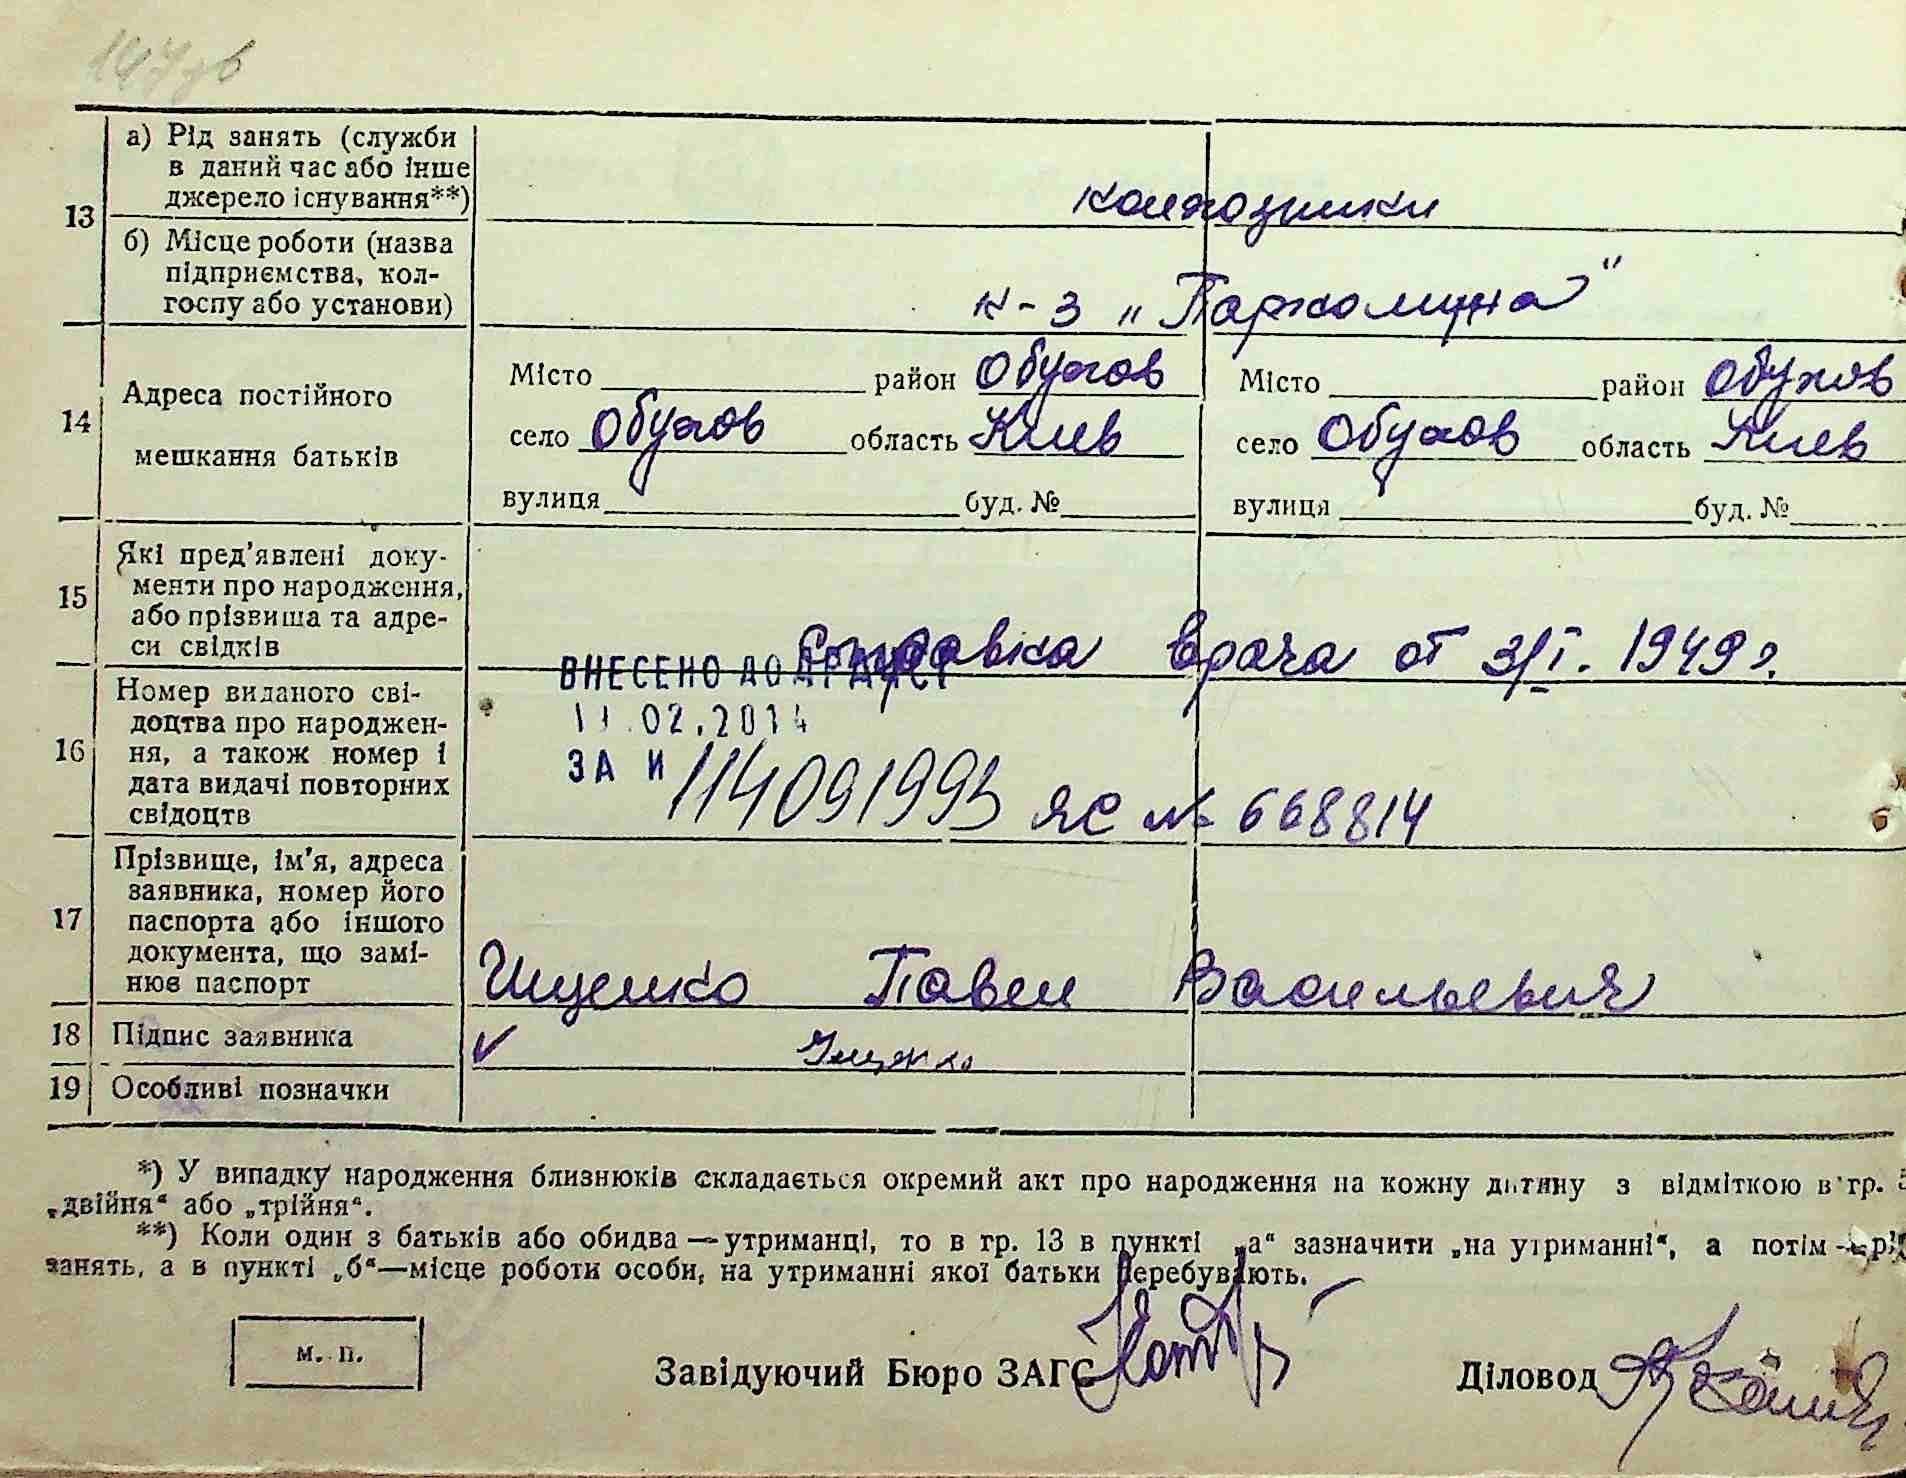 147 зв
13
а) Рід занять (служби
в даний час або інше
джерело існування**)
колхозники
б) Місце роботи (назва
підприємства, кол-
госпу або установи)
к-з „Пархоменка"
14
Адреса постійного
мешкання батьків
Місто район Обухов
село Обухов область Киев
вулиця буд. №
Місто район Обухов
село Обухов область Киев
вулиця буд. №
15
Які пред'явлені доку-
менти про народження,
або прізвища та адре-
си свідків
Справка врача от 3/I. 1949 г.
16
Номер виданого сві-
доцтва про народжен-
ня, а також номер і
дата видачі повторних
свідоцтв
ВНЕСЕНО ДО ДРАЦСГ
11.02.2014
ЗА №
114091993 ЯС № 668814
17
Прізвище, ім'я, адреса
заявника, номер його
паспорта або іншого
документа, що замі-
нює паспорт
Ищенко Павел Васильевич
18
Підпис заявника
✓ Ищенко
19
Особливі позначки
*) У випадку народження близнюків складається окремий акт про народження на кожну дитину з відміткою в гр. 5
„двійня“ або „трійня“.
**) Коли один з батьків або обидва — утриманці, то в гр. 13 в пункті „а“ зазначити „на утриманні“, а потім — рід
занять, а в пункті „б“—місце роботи особи, на утриманні якої батьки перебувають.
м. п.
Завідуючий Бюро ЗАГС
Діловод